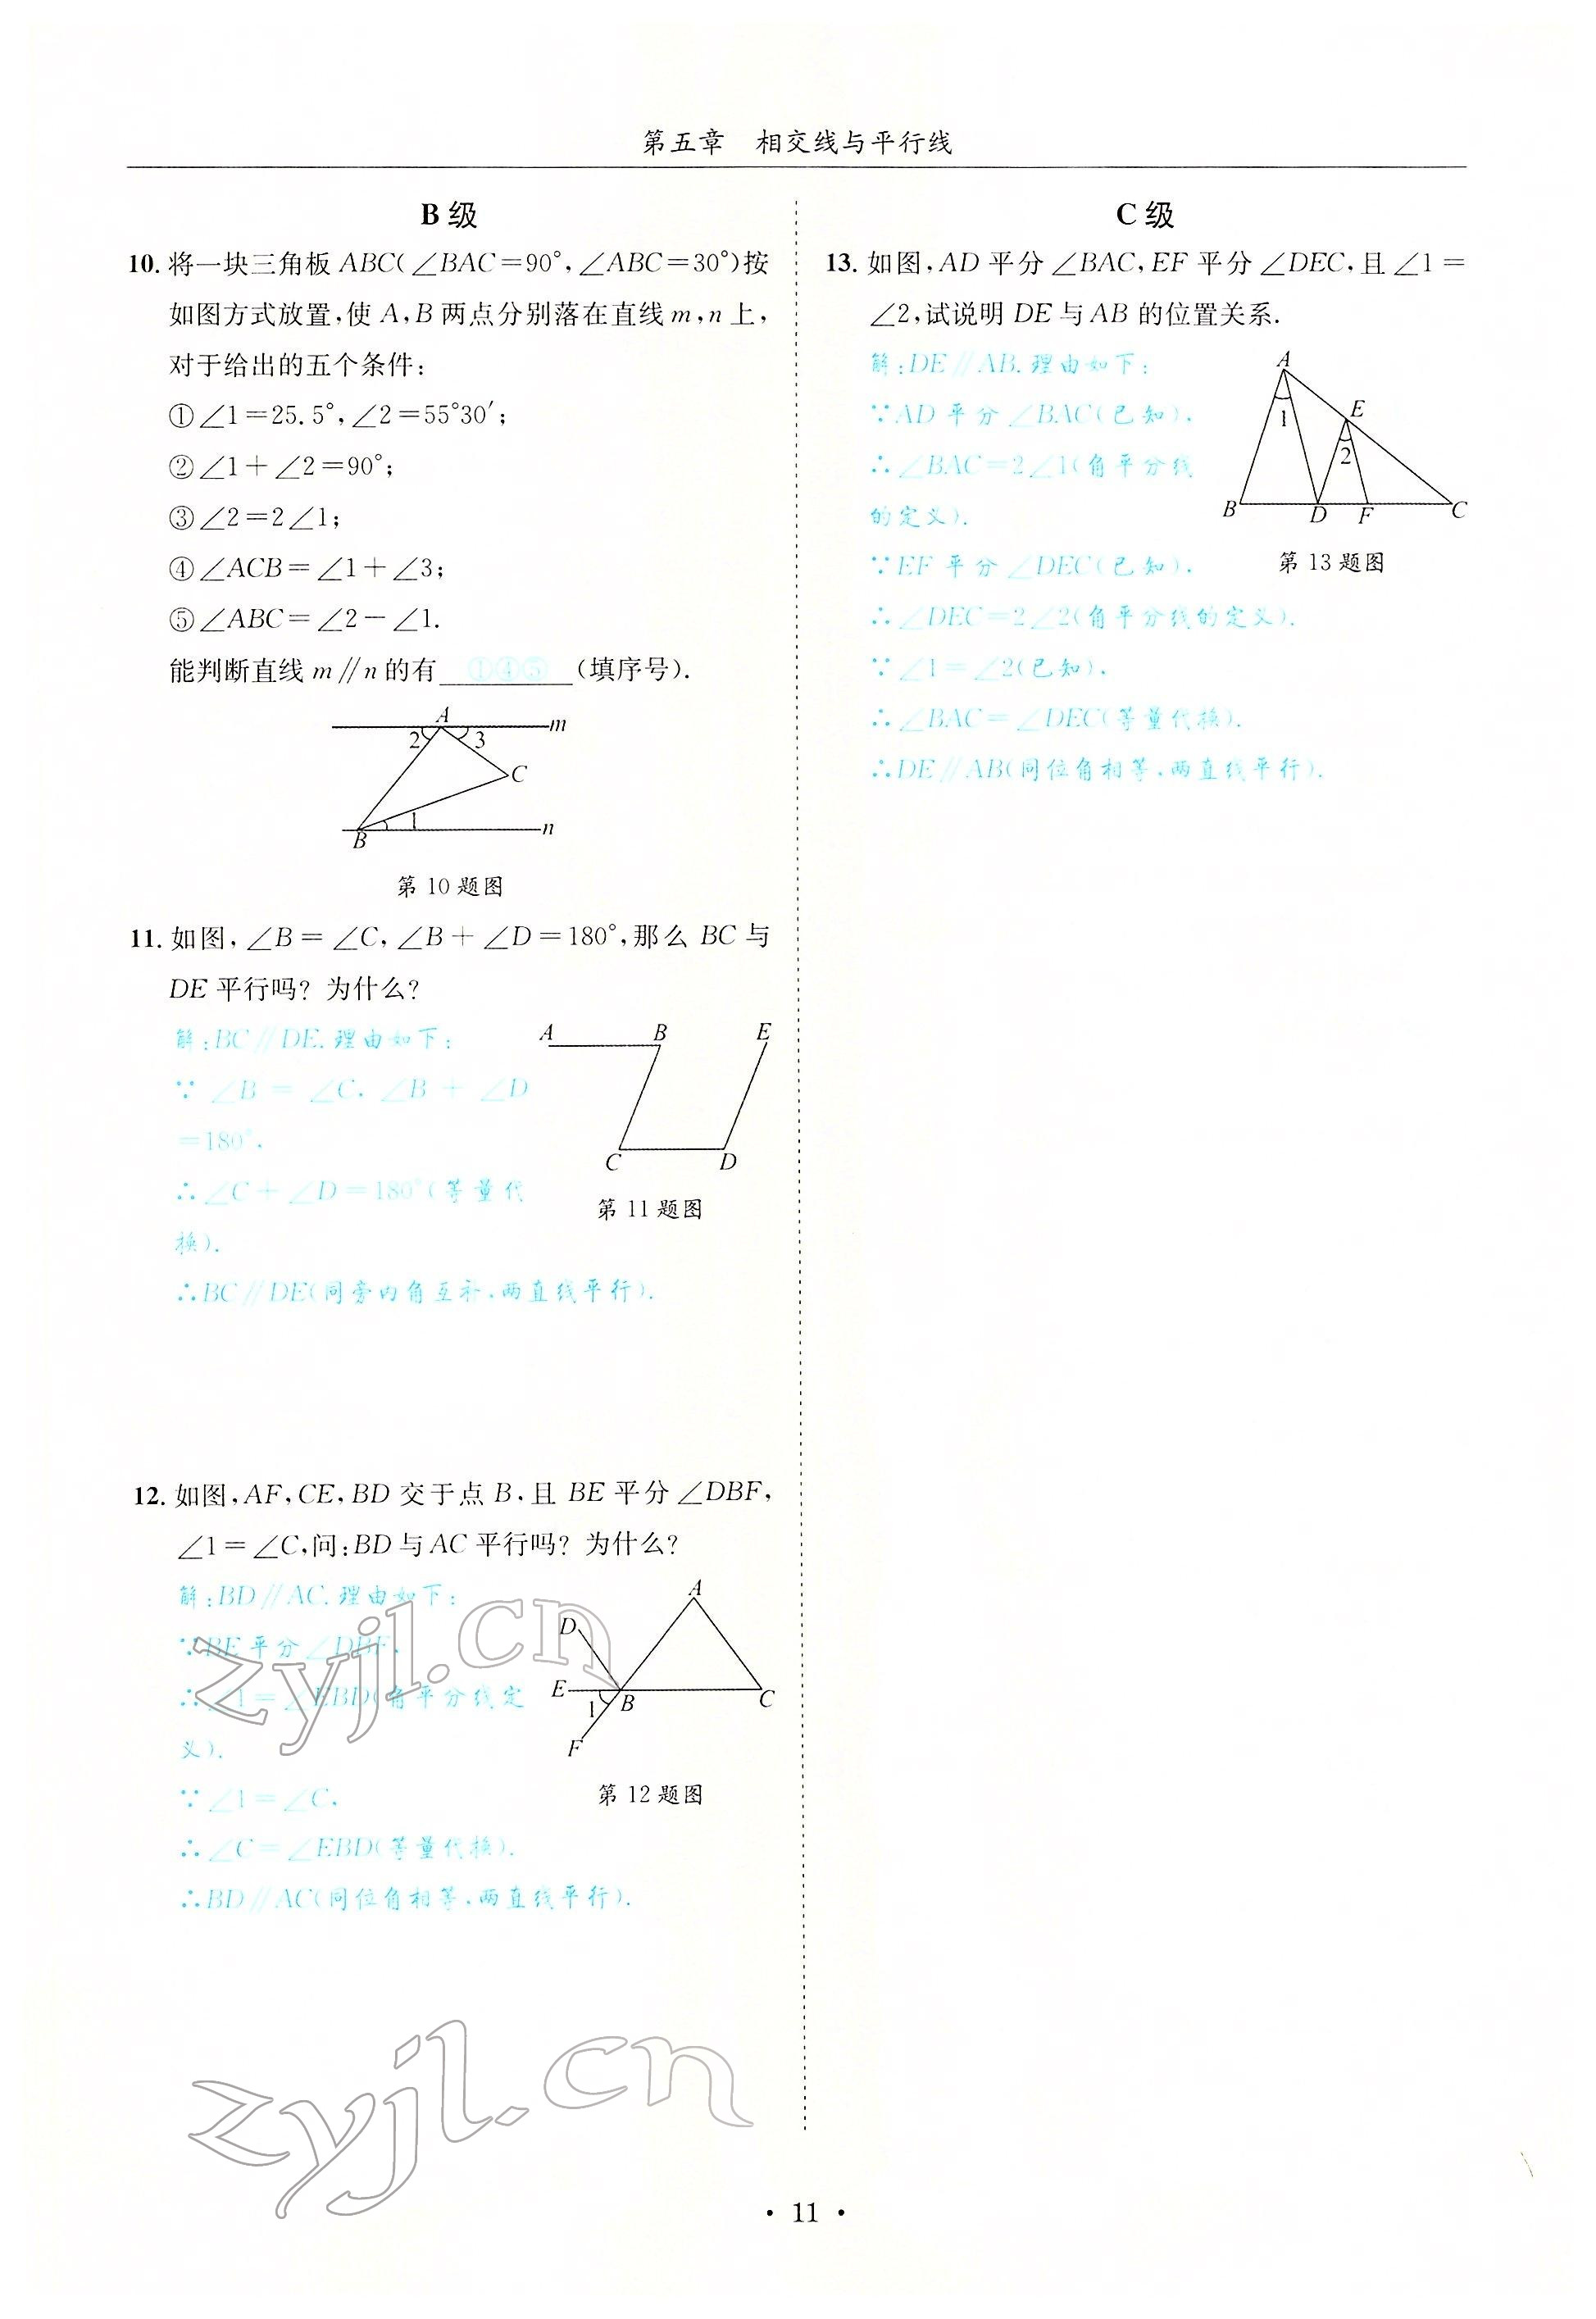 第五章 相交线与平行线
B 级
10. 将一块三角板 ABC(∠BAC=90°,∠ABC=30°)按
如图方式放置,使 A,B 两点分别落在直线 m,n 上,
对于给出的五个条件:
①∠1=25.5°,∠2=55°30′;
②∠1+∠2=90°;
③∠2=2∠1;
④∠ACB=∠1+∠3;
⑤∠ABC=∠2-∠1.
能判断直线 m∥n 的有 ①④⑤ (填序号).
A
m
2
3
C
1
B
n
第 10 题图
11. 如图,∠B=∠C,∠B+∠D=180°,那么 BC 与
DE 平行吗? 为什么?
解:BC∥DE.理由如下:
∵∠B=∠C,∠B+∠D
=180°,
∴∠C+∠D=180°(等量代
换).
∴BC∥DE(同旁内角互补,两直线平行).
A
B
E
C
D
第 11 题图
12. 如图,AF,CE,BD 交于点 B,且 BE 平分∠DBF,
∠1=∠C,问:BD 与 AC 平行吗? 为什么?
解:BD∥AC.理由如下:
∵BE 平分∠DBF,
∴∠1=∠EBD(角平分线定
义).
∵∠1=∠C,
∴∠C=∠EBD(等量代换).
∴BD∥AC(同位角相等,两直线平行).
A
D
E
B
C
1
F
第 12 题图
C 级
13. 如图,AD 平分∠BAC,EF 平分∠DEC,且∠1=
∠2,试说明 DE 与 AB 的位置关系.
解:DE∥AB.理由如下:
∵AD 平分∠BAC(已知),
∴∠BAC=2∠1(角平分线
的定义).
∵EF 平分∠DEC(已知),
∴∠DEC=2∠2(角平分线的定义).
∵∠1=∠2(已知),
∴∠BAC=∠DEC(等量代换).
∴DE∥AB(同位角相等,两直线平行).
A
1
E
2
B
D
F
C
第 13 题图
zyjl.cn
zyjl.cn
· 11 ·